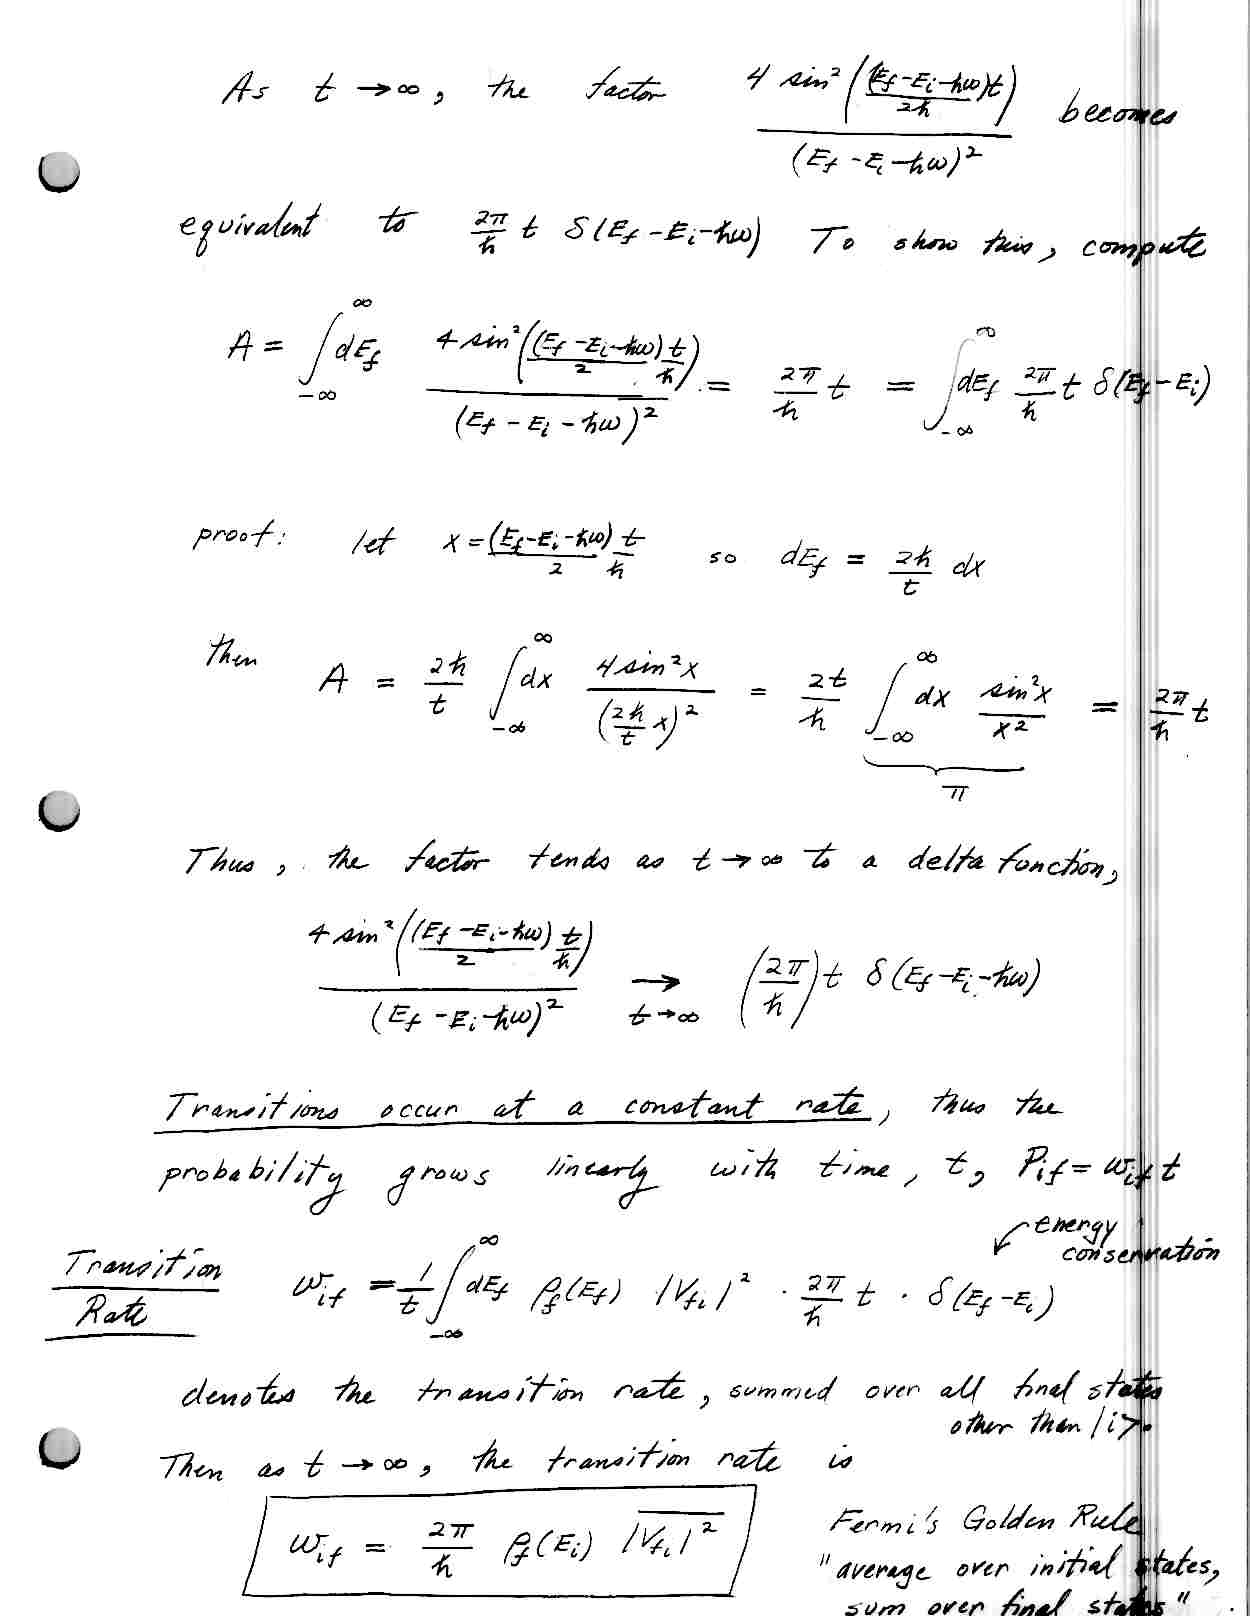 As t → ∞, the factor 4 sin²((Ef - Ei - ħω)t / 2ħ) / (Ef - Ei - ħω)² becomes
equivalent to 2π/ħ t δ(Ef - Ei - ħω) To show this, compute
A = ∫_{-∞}^{∞} dEf 4 sin²((Ef - Ei - ħω)/2 t/ħ) / (Ef - Ei - ħω)² = 2π/ħ t = ∫_{-∞}^{∞} dEf 2π/ħ t δ(Ef - Ei)
proof: let x = (Ef - Ei - ħω)/2 t/ħ so dEf = 2ħ/t dx
then A = 2ħ/t ∫_{-∞}^{∞} dx 4 sin²x / (2ħ/t x)² = 2t/ħ ∫_{-∞}^{∞} dx sin²x / x² = 2π/ħ t
π
Thus, the factor tends as t → ∞ to a delta function,
4 sin²((Ef - Ei - ħω)/2 t/ħ) / (Ef - Ei - ħω)² → t→∞ (2π/ħ) t δ(Ef - Ei - ħω)
Transitions occur at a constant rate, thus the
probability grows linearly with time, t, Pif = wif t
energy
conservation
Transition
Rate
wif = 1/t ∫_{-∞}^{∞} dEf ρf(Ef) |Vfi|² · 2π/ħ t · δ(Ef - Ei)
denotes the transition rate, summed over all final states
other than |i>.
Then as t → ∞, the transition rate is
wif = 2π/ħ ρf(Ei) \overline{|Vfi|²}
Fermi's Golden Rule
"average over initial states,
sum over final states"